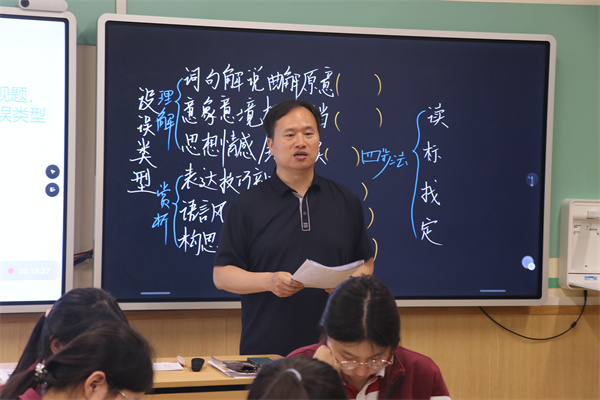 观题，
误类型
00:18:27
设误类型
理解
词句解说曲解原意（ ）
意象意境
思想情感
赏析
表达技巧
语言风
构思
四步法
读
标
找
定